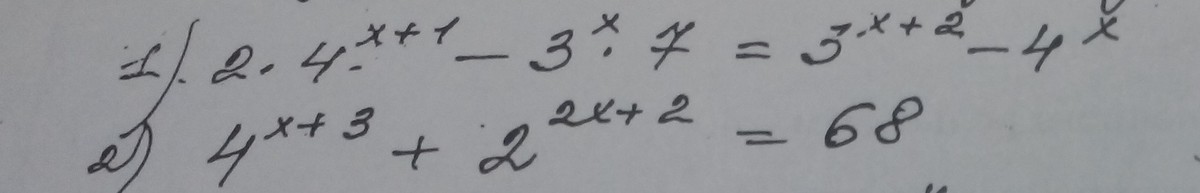 1). 2 · 4^{x+1} − 3^x · 7 = 3^{x+2} − 4^x
2) 4^{x+3} + 2^{2x+2} = 68